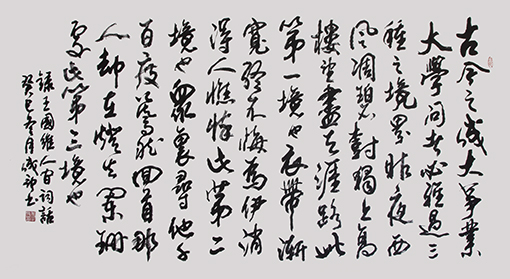 古今之成大事業
大學問者必經過三
種之境界昨夜西
風凋碧樹獨上高
樓望盡天涯路此
第一境也衣帶漸
寬終不悔為伊消
得人憔悴此第二
境也眾裏尋他千
百度驀然回首那
人卻在燈火闌珊
處此第三境也
錄王國維人間詞話
癸巳冬月